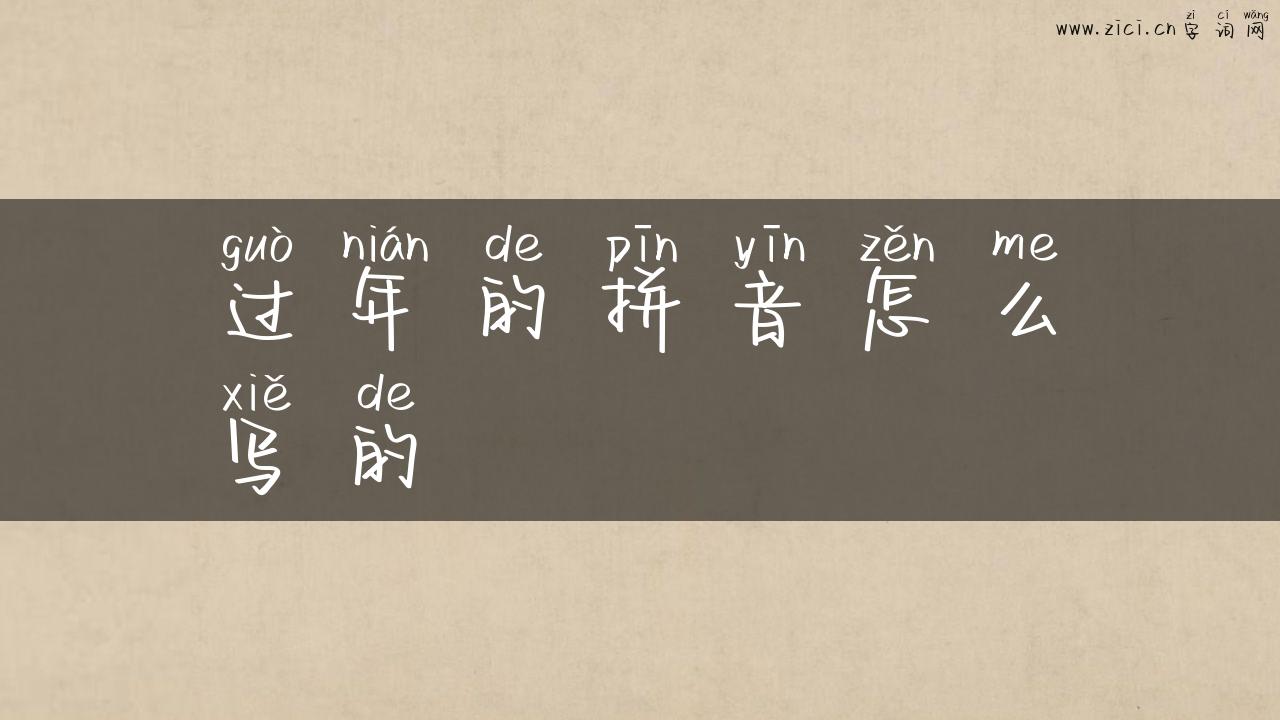 zì cí wǎng
www.zici.cn 字 词 网
guò nián de pīn yīn zěn me
过 年 的 拼 音 怎 么
xiě de
写 的